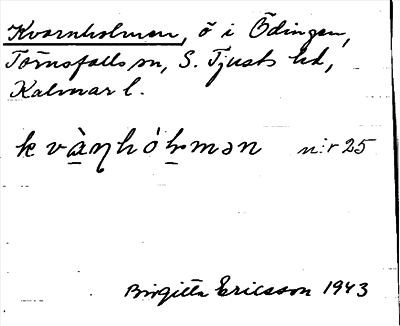 Kvarnholmen, ö i Ödingen,
Törnsfalls sn, S. Tjusts hd,
Kalmar l.
kvàɳhóɫmən n:r 25
Birgitta Ericsson 1943